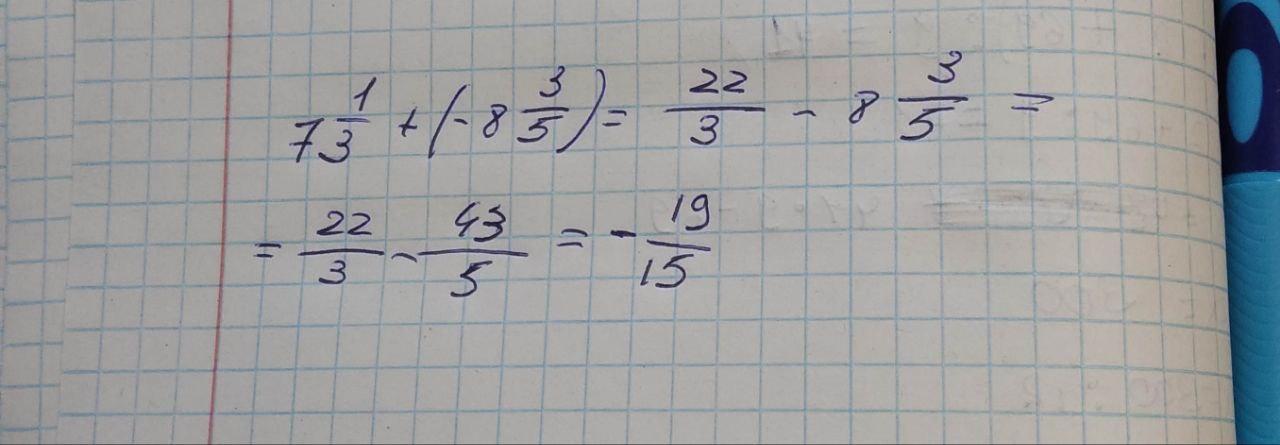 7 1/3 + (- 8 3/5) = 22/3 - 8 3/5 =
= 22/3 - 43/5 = - 19/15